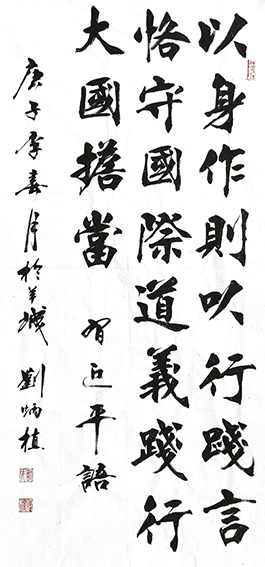 以身作則以行踐言
恪守國際道義踐行
大國擔當 習近平語
庚子季春月於羊城 劉炳植